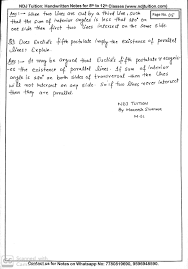 NDJ Tuition: Handwritten Notes for 8th to 12th Classes (www.ndjtuition.com)
Page No. 05
Ans:→ When two lines are cut by a third line, such
that the sum of interior angles is less than 180° on
one side then first two lines intersect on the same side
Does Euclid's fifth postulate imply the existence of parallel
lines? Explain.
Ans:→ It may be argued that Euclid's fifth postulate recogniz-
es the existence of parallel lines. If sum of interior
angles is 180° on both sides of transversal then the lines
will not intersect on any side. So if two lines never intersect
then they are parallel.
NDJ TUITION
By
Contact us for Notes on Whatsapp No: